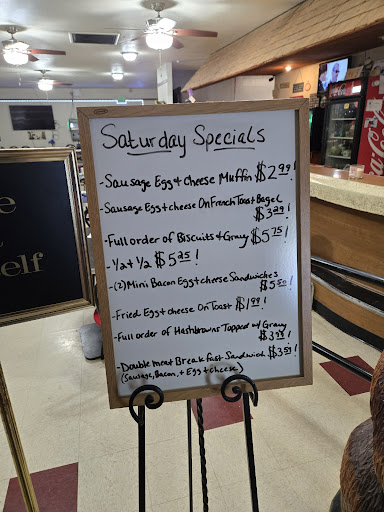 Saturday Specials
-Sausage Egg + Cheese Muffin $2.99!
-Sausage Egg + cheese On French Toast Bagel
$3.29!
-Full order of Biscuits + Gravy $5.75!
-1/2 + 1/2 $5.25!
-(2) Mini Bacon Egg + cheese Sandwiches
$5.50!
-Fried Egg + cheese On Toast $1.99!
-Full order of Hashbrowns Topped w/ Gravy
$3.98!
-Double meat Breakfast Sandwich $3.59!
(Sausage, Bacon, + Egg + cheese)
e
elf
Coca-Cola